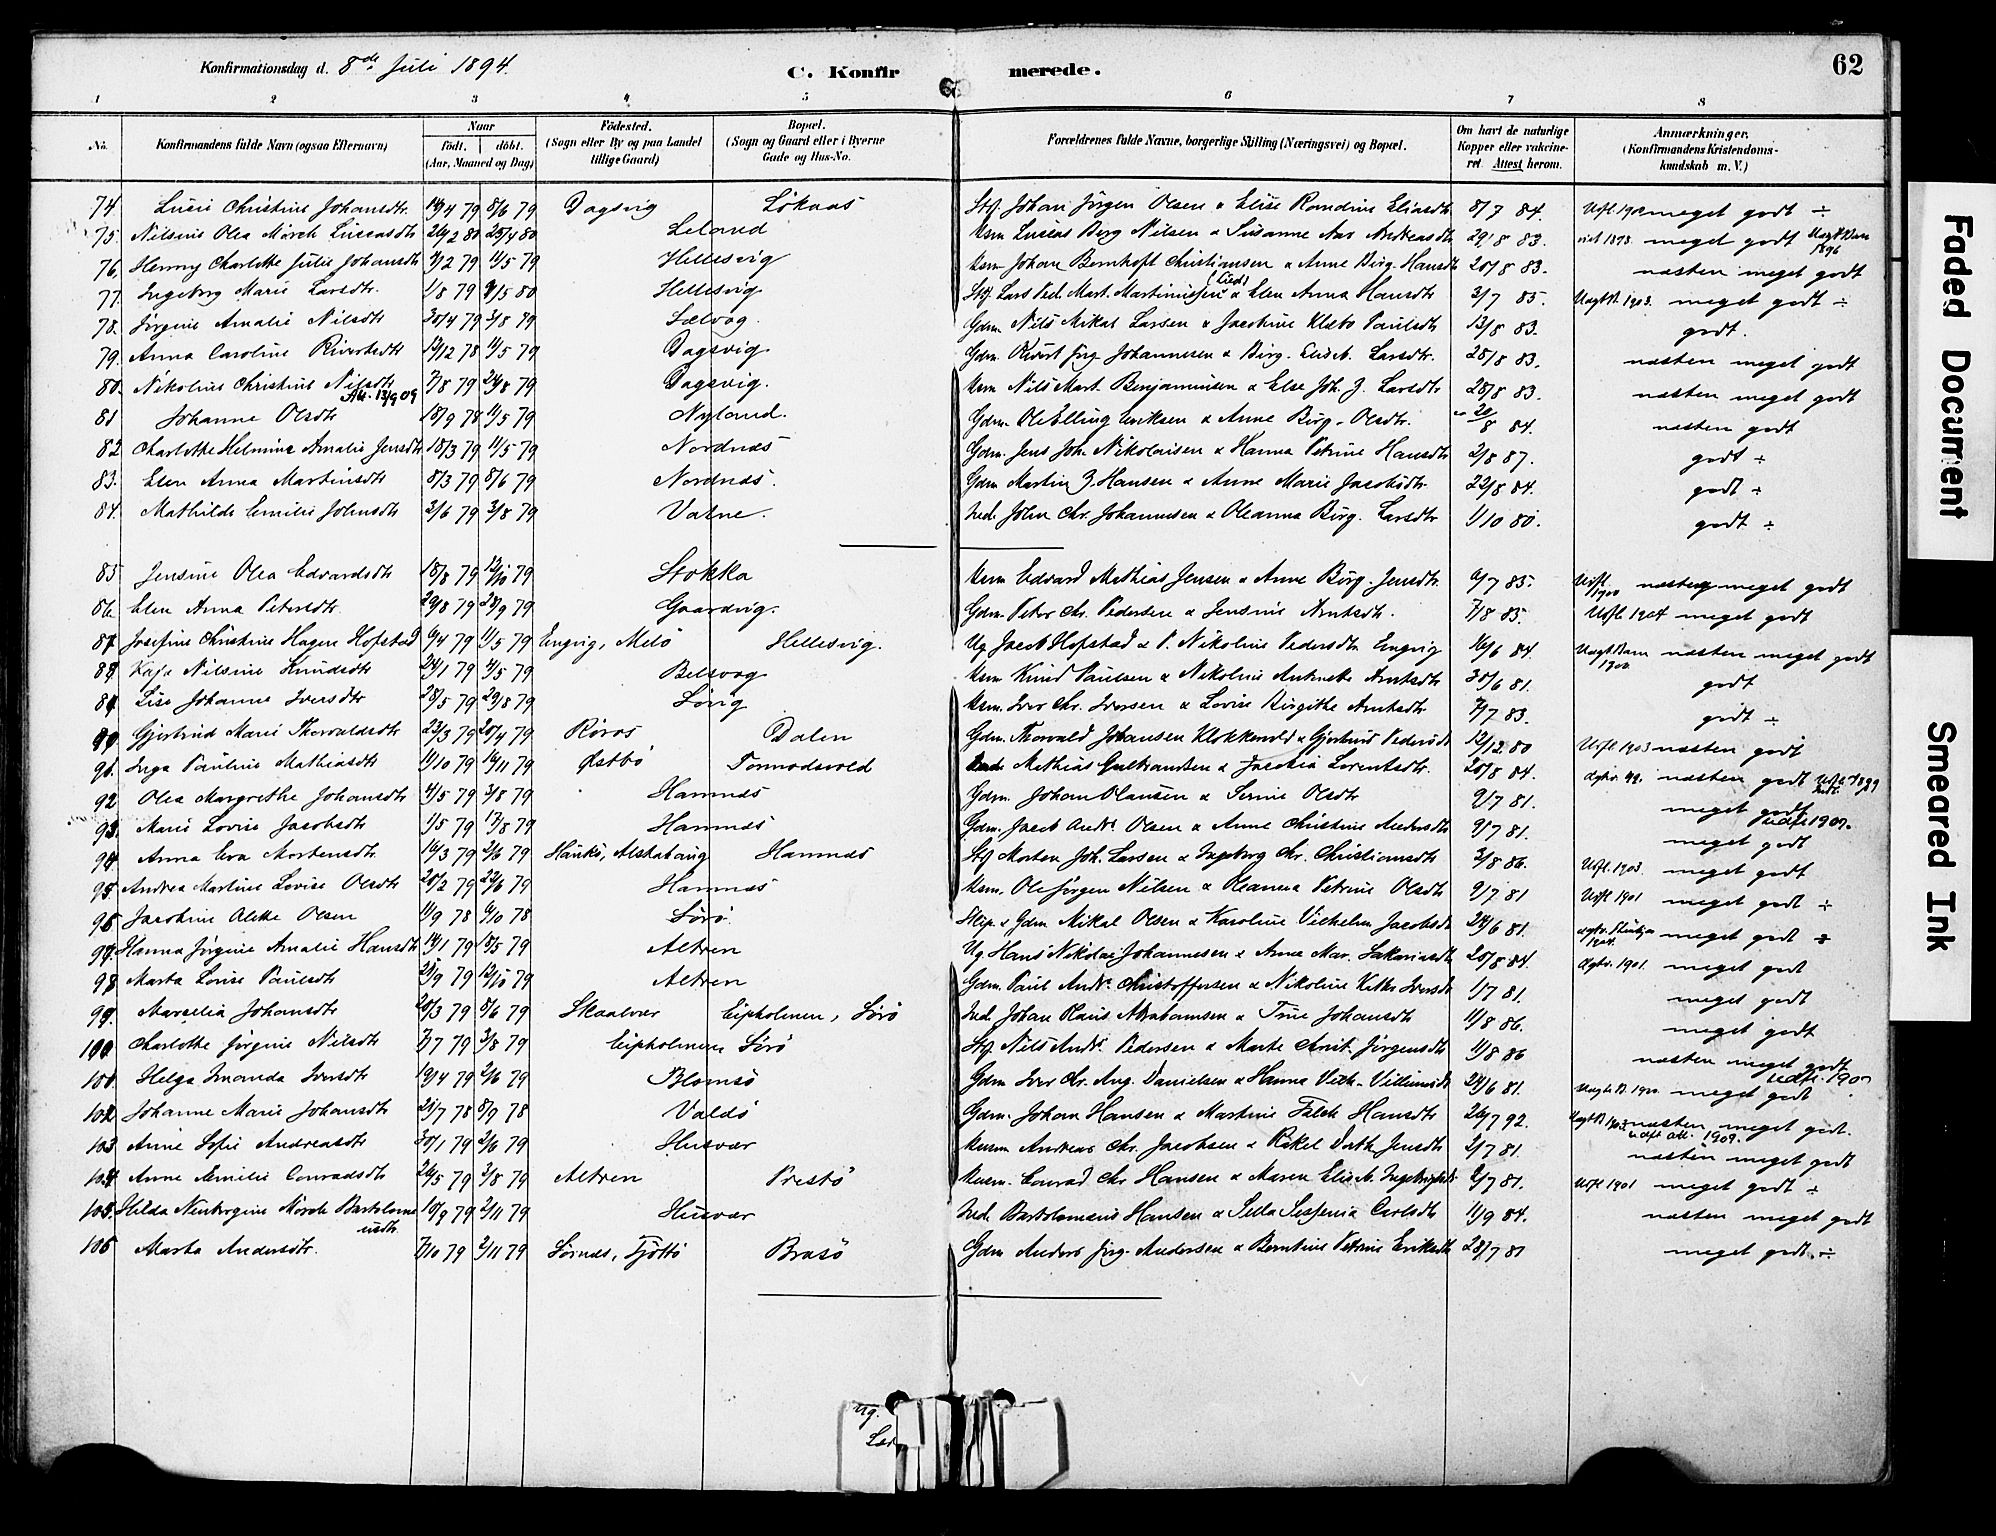 Konfirmationsdag d. 8de Juli 1894.
C. Konfirmerede.
62
1 2 3 4 5 6 7 8
No. Konfirmandens fulde Navn (ogsaa Efternavn) Naar født. døbt. (Aar, Maaned og Dag) Fødested. (Sogn eller By og paa Landet tillige Gaard) Bopæl. (Sogn og Gaard eller i Byerne Gade og Hus-No.) Forældrenes fulde Navne, borgerlige Stilling (Næringsvei) og Bopæl. Om havt de naturlige Kopper eller vakcineret. Attest herom. Anmærkninger. (Konfirmandens Kristendomskundskab m. V.)
74 Lusie Christine Johansdtr. 14/4 79 8/6 79 Dagsvig Løkaas Stf. Johan Jørgen Olsen & Elise Randine Eliasdtr 8/7 84. meget godt ÷
75. Nilsine Olea Mørch Lucasdtr 26/2 80 25/4 80 Leland Husm Lucas Berg Nilsen & Susanne Andreasdtr 29/8 83. meget godt
76. Henny Charlotte Julie Johansdtr 4/2 79 11/5 79 Hellesvig Husm Johan Bernhoft Christiansen & Anne Birg. Hansdtr 20/8 83. næsten meget godt
77. Ingeborg Marie Larsdtr. 1/8 79 4/5 80 Hellesvig Stf Lars Ped. Mart. Martinussen & Elen Anna Hansdtr 3/7 85. 1903. meget godt ÷
78. Jørgine Amalie Nilsdtr 30/4 79 3/8 79 Sælvog. Gdm. Nils Mikal Larsen & Jacobine Klæbo Paulsdtr 13/8 83. godt.
79. Anna Caroline Rivertsdtr 14/12 78 11/5 79 Dagsvig Gdm. Rivert Jørg. Johannesen & Birg. Elisab. Larsdtr. 28/8 83. næsten meget godt
80. Nikoline Christine Nilsdtr 7/8 79 24/8 79 Dagsvig. Husm Nils Mart. Benjaminsen & Else Joh. J. Larsdtr 28/8 83. næsten meget godt
Att. 13/9 09
81 Johanne Olsdtr 18/9 78 11/5 79 Nyland. Gdm. Ole Elling Eriksen & Anne Birg. Olsdtr. 20/8 84. næsten godt
82 Charlotte Helmine Amalie Jensdtr 18/3 79 11/5 79 Nordnæs Gdm. Jens Joh. Nikolaisen & Hanna Petrine Hansdtr 2/8 87. godt ÷
83. Elen Anna Martinsdtr 8/3 79 8/6 79 Nordnæs. Gdm Martin J. Hansen & Anne Marie Jacobsdtr. 22/8 84. godt ÷
84. Mathilde Emilie Johnsdtr 2/6 79 3/8 79 Vatne. Ind. John Chr. Johannesen & Oleanna Birg. Larsdtr 1/10 80. godt ÷
85 Jensine Olea Edvardsdtr 18/8 79 12/10 79 Stokka Husm Edvard Mathias Jensen & Anne Birg. Jensdtr. 6/7 85. Udfl. 1900 næsten meget godt
86. Elen Anna Petersdtr. 29/8 79 28/9 79 Gaardvig. Gdm. Peter Chr. Pedersen & Jensine Arntsdtr. 7/8 85. Udfl. 1904 meget godt
87 Josefine Christine Hagen Hofstad 6/4 79 11/5 79 Engvig, Melø Hellesvig. Ug. Jacob Hofstad & P. Nikoline Pedersdtr Engvig 16/6 84. næsten meget godt
88 Kaja Nilsine Knudsdtr 24/1 79 4/5 79 Belsvog Husm Knud Paulsen & Nikoline Antonette Arntsdtr 30/6 81. godt
89 Lise Johanne Iversdtr 28/5 79 29/8 79 Sørig Husm. Iver Chr. Iversen & Lovise Birgithe Arntsdtr 7/7 83. godt ÷
90 Gjertrud Marie Thorvaldsdtr 23/3 79 20/4 79 Røros Dalen Gdm. Thorvald Johansen Klokkervold & Gjertrud Pedersdtr 12/12 80 Udfl. 1903 næsten godt
91. Inga Pauline Mathiasdtr 11/10 79 16/11 79 Østbø Tormodsvold Mathias Gulbrandsen & Jacobia Lorentsdtr. 20/8 84. næsten godt
92 Olea Margrethe Johansdtr 4/5 79 3/8 79 Hamnæs Gdm. Johan Olausen & Serine Olsdtr 9/7 81. meget godt
93. Marie Lovise Jacobsdtr 1/5 79 17/8 79 Hamnæs Gdm. Jacob Andr. Olsen & Anne Christine Andersdtr 9/7 81. Udfl. 1907. meget godt
94 Anna Eva Mortensdtr. 14/3 79 2/6 79 Alstahaug Hamnæs Stf Morten Joh. Larsen & Ingeborg Chr. Christiansdtr 3/8 86. Udfl. 1903. meget godt
95 Andrea Martine Lovise Olsdtr 20/2 79 22/6 79 Hamnæs Husm. Ole Jørgen Nilsen & Oleanna Petrine Olsdtr 9/7 81 Udfl 1901 meget godt ÷
96 Jacobine Alette Olsen 11/9 78 6/10 78 Sørø Gdm Mikal Olsen & Karoline Vilhelm. Jacobsdtr 24/6 81. meget godt
97 Hanna Jørgine Amalie Hansdtr 14/1 79 18/5 79 Altren Ug. Hans Nikolai Johannesen & Anne Mar. Sakariasdtr 20/8 84. 1901. meget godt
98 Marta Lovise Paulsdtr 21/9 79 12/10 79 Altren Gdm. Paul Andr. Christoffersen & Nikoline Iversdtr 1/7 81. meget godt
99. Marselia Johansdtr 20/3 79 8/6 79 Skaalvær Eipholmen, Sørø Ind. Johan Klaus Abrahamsen & Trine Johansdtr 11/8 86. meget godt
100 Charlotte Jørgine Nilsdtr 7/7 79 3/8 79 Eipholmen Sørø Stf Nils Andr. Pedersen & Marte Christ. Jørgensdtr 11/8 86 næsten meget godt
101 Helga Imanda Iversdtr 19/4 79 2/6 79 Blomsø Gdm Iver Chr. Aug. Danielsen & Hanna Vilh. Villumsdtr 24/6 81. meget godt
102 Johanne Marie Johansdtr 21/7 78 8/9 78 Valdø Gdm. Johan Hansen & Martine Falch Hansdtr 26/7 92. næsten meget godt.
103 Anne Sofie Andreasdtr 30/1 79 2/6 79 Husvær Husm Andreas Chr. Jacobsen & Rikel Dorth Jensdtr 2/7 81. udfl. att. 1909. næsten meget godt
104 Anne Emilie Conradsdtr 26/5 79 3/8 79 Altren Prestø Husm. Conrad Chr Hansen & Maren Elisab. Ingebrigtsdtr 2/7 81. Udfl 1901 meget godt ÷
105. Hilda Nenbergine Mørch Bartolomeusdtr 10/9 79 2/11 79 Husvær Ind. Bartolomeus Hansen & Sella Sissenia Carlsdtr 11/9 84. næsten meget godt
106 Marta Andersdtr. 7/10 79 2/11 79 Sørnæs, Tjøttø Brasø Gdm Anders Jørg. Andersen & Berntine Petrine Eriksdtr 28/7 81 meget godt. ÷
Ug.
Faded Document
Smeared Ink